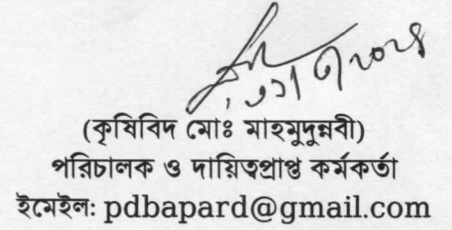 (কৃষিবিদ মোঃ মাহমুদুন্নবী)
পরিচালক ও দায়িত্বপ্রাপ্ত কর্মকর্তা
ইমেইলঃ pdbapard@gmail.com